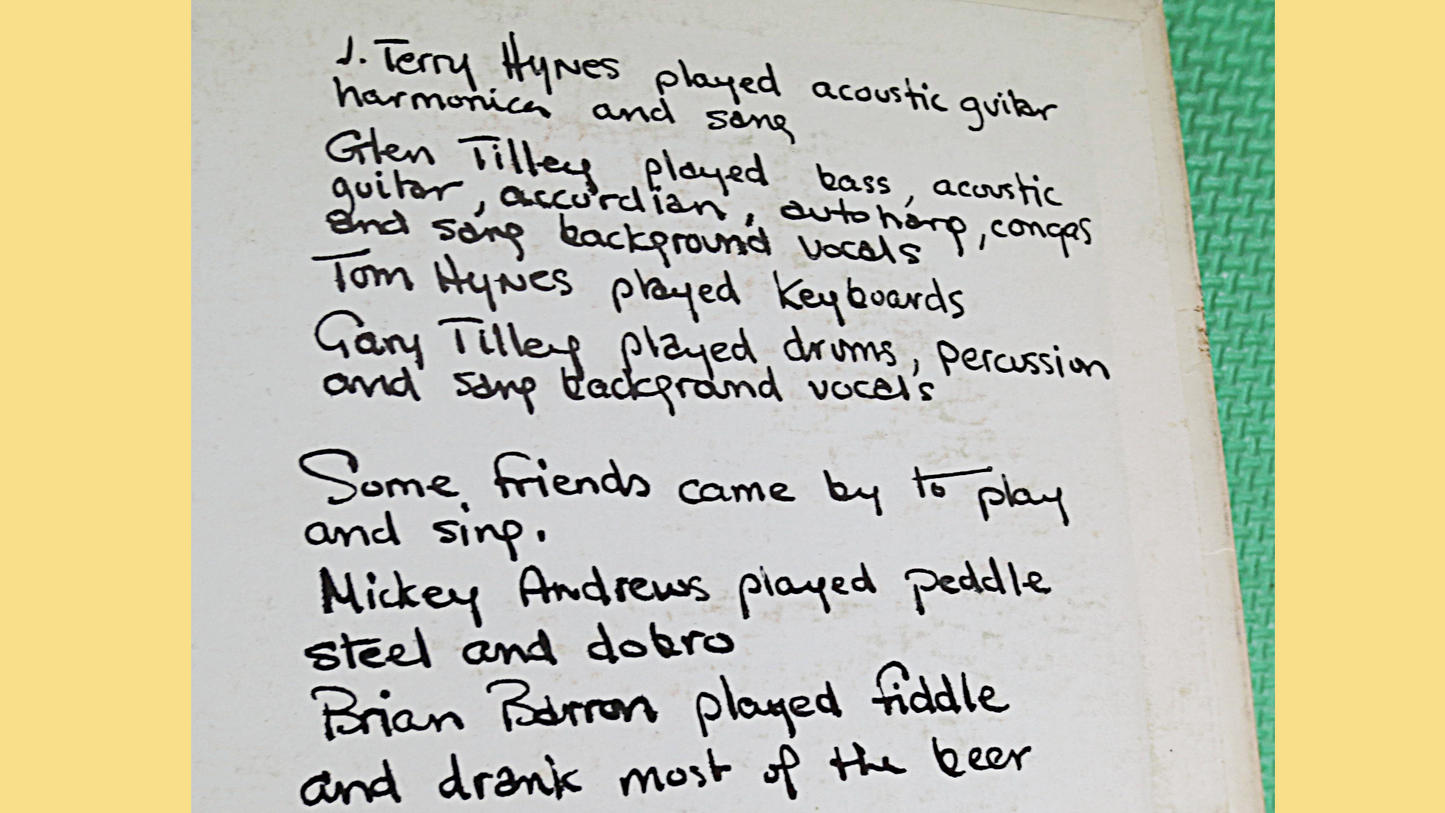 J. Terry Hynes played acoustic guitar
harmonica and sang
Glen Tilley played bass, acoustic
guitar, accordian, autoharp, congas
and sang background vocals
Tom Hynes played Keyboards
Gary Tilley played drums, percussion
and sang backgrand vocals
Some friends came by to play
and sing.
Mickey Andrews played peddle
steel and dobro
Brian Barron played fiddle
and drank most of the beer